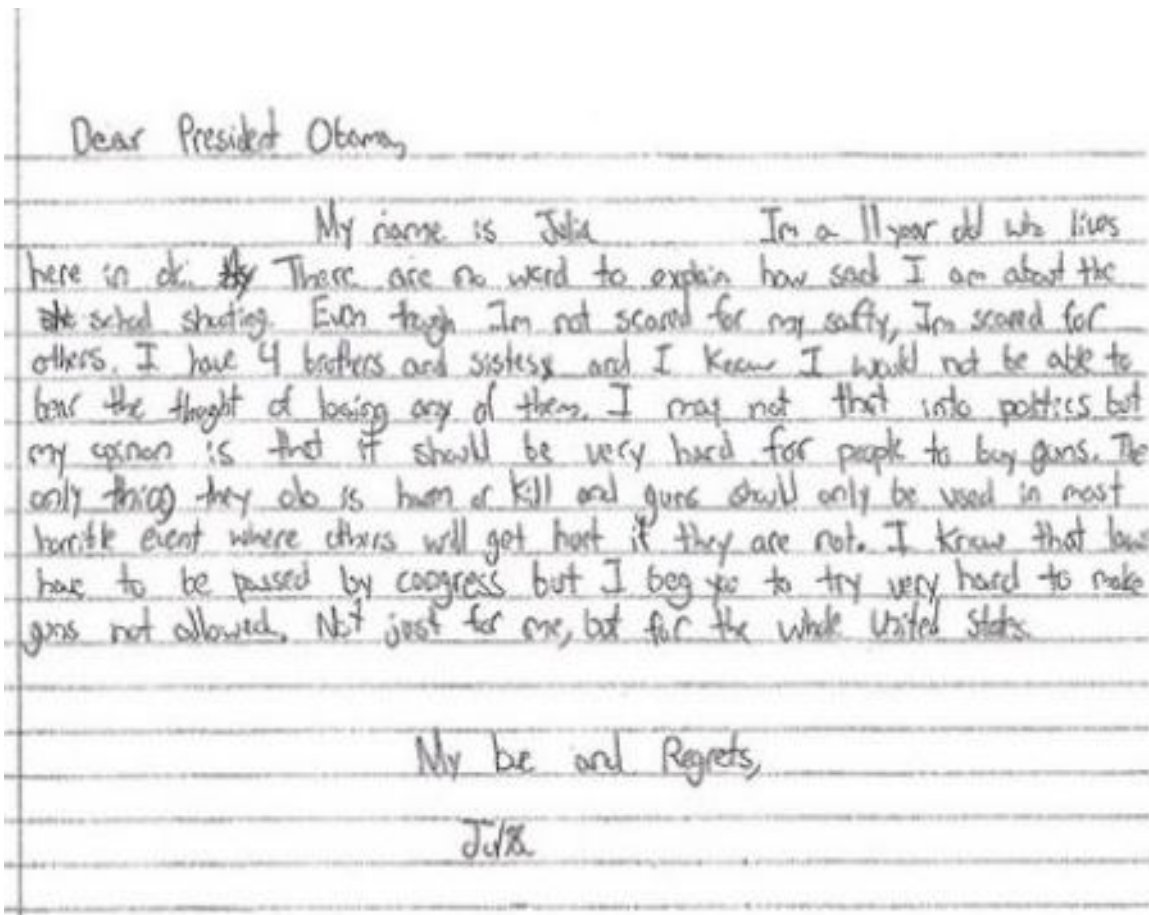 Dear President Obama,
My name is Julia Im a 11 year old who lives
here in dc. There are no word to explain how sad I am about the
school shooting. Even though Im not scared for my safty, Im scared for
others. I have 4 brothers and sisters and I know I would not be able to
bear the thoght of losing any of them. I may not that into politics but
my opinon is that it should be very hard for people to buy guns. The
only thing they do is harm or kill and guns should only be used in most
horrible event where others will get hurt if they are not. I know that laws
have to be passed by congress but I beg you to try very hard to make
guns not allowed. Not just for me, but for the whole United States.
My and Regrets,
Julia